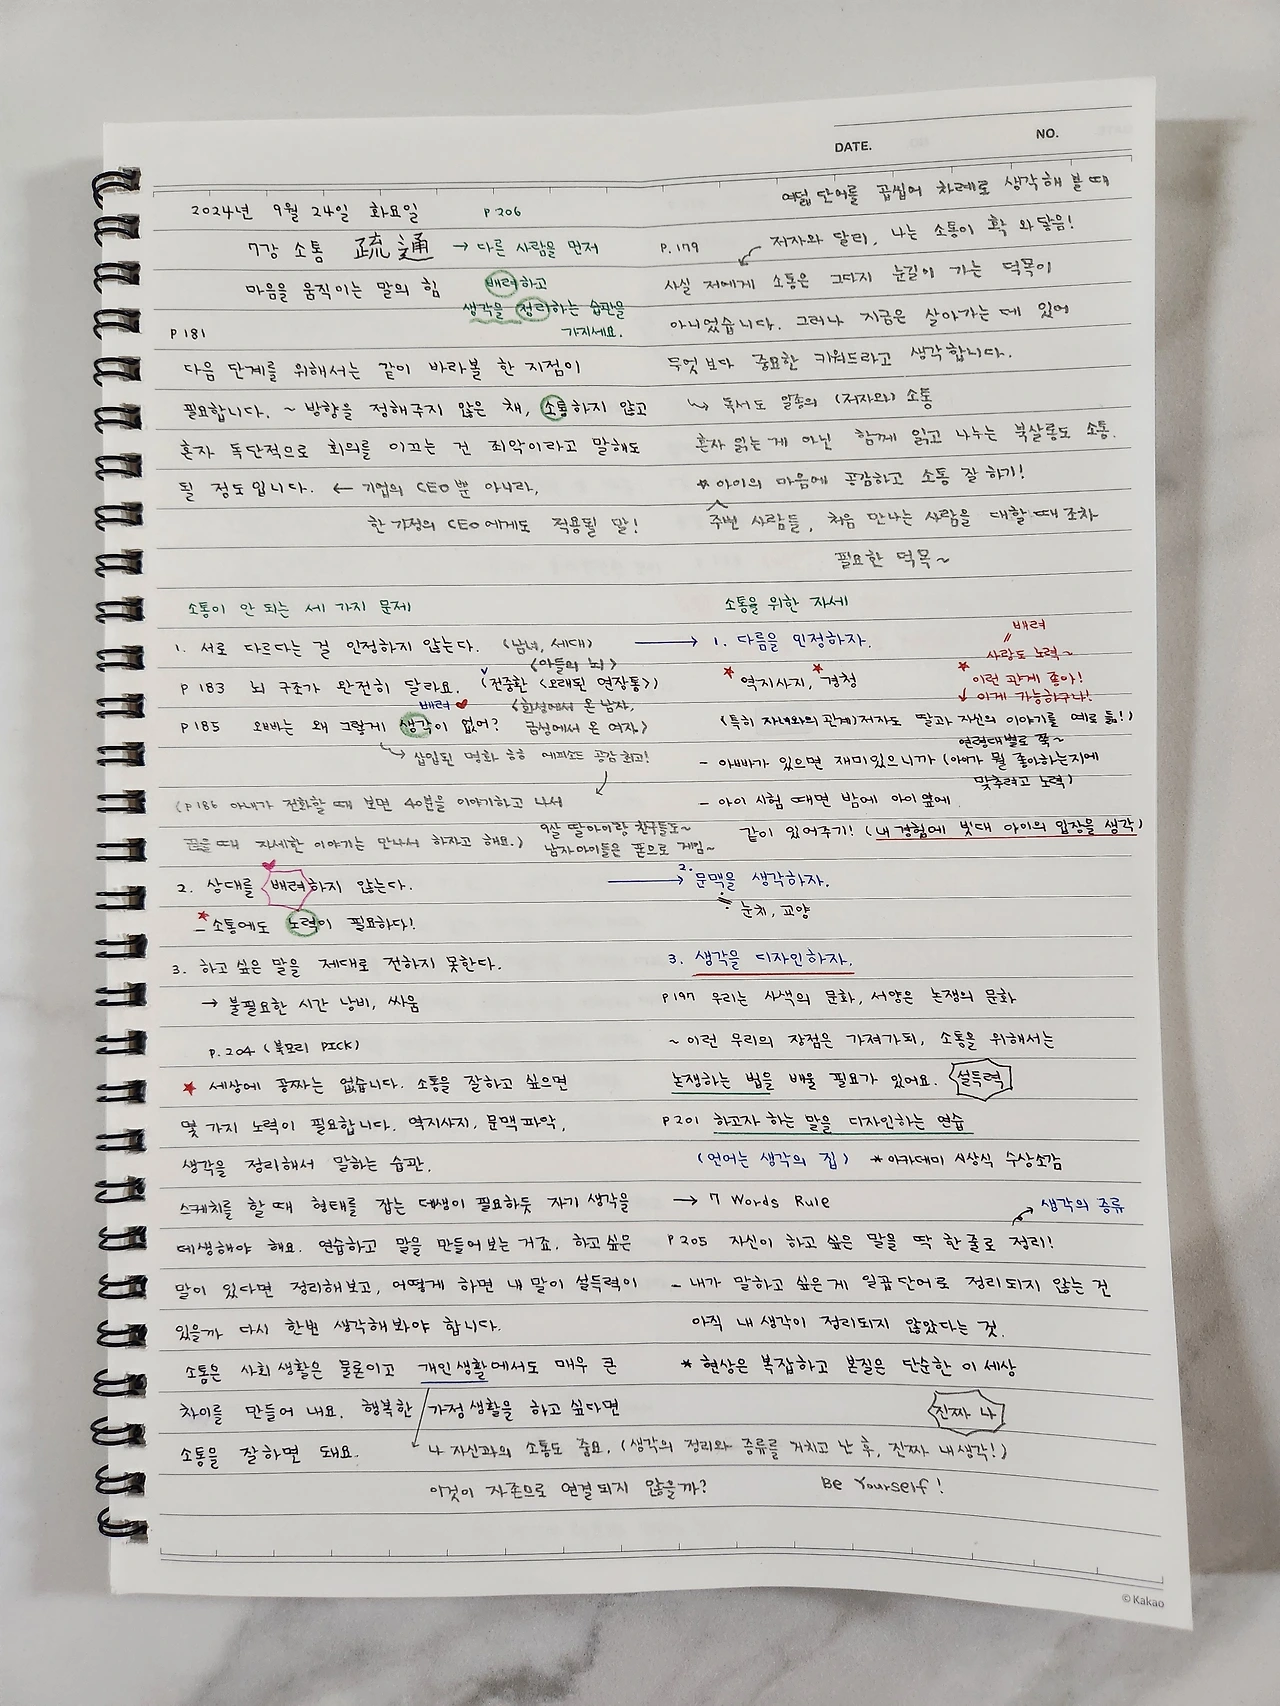 DATE.
NO.
2024년 9월 24일 화요일
P 206
7강 소통 疏通 → 다른 사람을 먼저
마음을 움직이는 말의 힘
배려하고
생각을 정리하는 습관을
가지세요.
P 181
다음 단계를 위해서는 같이 바라볼 한 지점이
필요합니다. ~ 방향을 정해주지 않은 채, 소통하지 않고
혼자 독단적으로 회의를 이끄는 건 죄악이라고 말해도
될 정도입니다. ← 기업의 CEO 뿐 아니라,
한 가정의 CEO에게도 적용될 말!
여덟 단어를 곱씹어 차례로 생각해 볼 때
저자와 달리, 나는 소통이 확 와닿음!
P.179
사실 저에게 소통은 그다지 눈길이 가는 덕목이
아니었습니다. 그러나 지금은 살아가는 데 있어
무엇보다 중요한 키워드라고 생각합니다.
↳ 독서도 일종의 (저자와) 소통
혼자 읽는 게 아닌 함께 읽고 나누는 북살롱도 소통.
* 아이의 마음에 공감하고 소통 잘 하기!
주변 사람들, 처음 만나는 사람을 대할 때조차
필요한 덕목~
소통이 안 되는 세 가지 문제
1. 서로 다르다는 걸 인정하지 않는다. (남녀, 세대)
<아들의 뇌>
P 183 뇌 구조가 완전히 달라요. (전중환 <오래된 연장통>)
배려 ♥
<화성에서 온 남자,
P 185 오빠는 왜 그렇게 생각이 없어? 금성에서 온 여자>
↳ 삽입된 명화 ㅎㅎ 에피소드 공감 최고!
(P 186 아내가 전화할 때 보면 40분을 이야기하고 나서
끊을 때 자세한 이야기는 만나서 하자고 해요.)
9살 딸아이랑 친구들도~
남자아이들은 폰으로 게임~
2. 상대를 배려하지 않는다.
★ - 소통에도 노력이 필요하다!
3. 하고 싶은 말을 제대로 전하지 못한다.
→ 불필요한 시간 낭비, 싸움
P.204 (북모리 PICK)
★ 세상에 공짜는 없습니다. 소통을 잘하고 싶으면
몇 가지 노력이 필요합니다. 역지사지, 문맥 파악,
생각을 정리해서 말하는 습관.
스케치를 할 때 형태를 잡는 데생이 필요하듯 자기 생각을
데생해야 해요. 연습하고 말을 만들어 보는 거죠. 하고 싶은
말이 있다면 정리해보고, 어떻게 하면 내 말이 설득력이
있을까 다시 한번 생각해 봐야 합니다.
소통은 사회 생활은 물론이고 개인생활에서도 매우 큰
차이를 만들어 내요. 행복한 가정생활을 하고 싶다면
소통을 잘하면 돼요.
소통을 위한 자세
→ 1. 다름을 인정하자.
배려
〃
사랑도 노력~
★ 역지사지, ★ 경청
★ 이런 관계 좋아!
↓ 이게 가능하구나!
(특히 자녀와의 관계) 저자도 딸과 자신의 이야기를 예로 듦!)
연령대별로 쭉~
- 아빠가 있으면 재미있으니까 (아이가 뭘 좋아하는지에
맞추려고 노력)
- 아이 시험 때면 밤에 아이 옆에
같이 있어주기! (내 경험에 빗대 아이의 입장을 생각)
→ 2. 문맥을 생각하자.
눈치, 교양
3. 생각을 디자인하자.
P197 우리는 사색의 문화, 서양은 논쟁의 문화
~ 이런 우리의 장점은 가져가되, 소통을 위해서는
논쟁하는 법을 배울 필요가 있어요. 설득력
P201 하고자 하는 말을 디자인하는 연습
(언어는 생각의 집) * 아카데미 시상식 수상소감
→ 7 Words Rule
생각의 종류
P205 자신이 하고 싶은 말을 딱 한 줄로 정리!
- 내가 말하고 싶은 게 일곱 단어로 정리되지 않는 건
아직 내 생각이 정리되지 않았다는 것.
* 현상은 복잡하고 본질은 단순한 이 세상
진짜 나
나 자신과의 소통도 중요. (생각의 정리와 종류를 거치고 난 후, 진짜 내 생각!)
이것이 자존으로 연결되지 않을까?
Be Yourself!
©Kakao